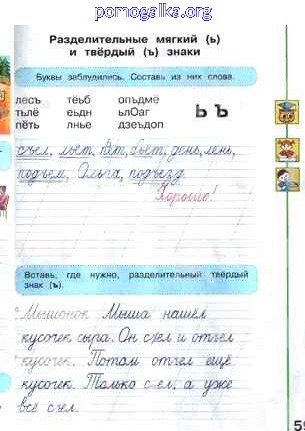 pomogalka.org
Разделительные мягкий (ь)
и твёрдый (ъ) знаки
Буквы заблудились. Составь из них слова.
лесъ тёьб опъдмё
тьлё еьдн ьлОаг
пёть лнье дзеъдоп
Ь Ъ
съел, льёт, бьёт, день, лень,
подъём, Ольга, подъезд.
Хорошо!
Вставь, где нужно, разделительный твёрдый
знак (ъ).
Мышонок Мыша нашёл
кусочек сыра. Он с ел и от ел
кусочек. Потом от ел ещё
кусочек. Только с ел, а уже
всё с ел.
5